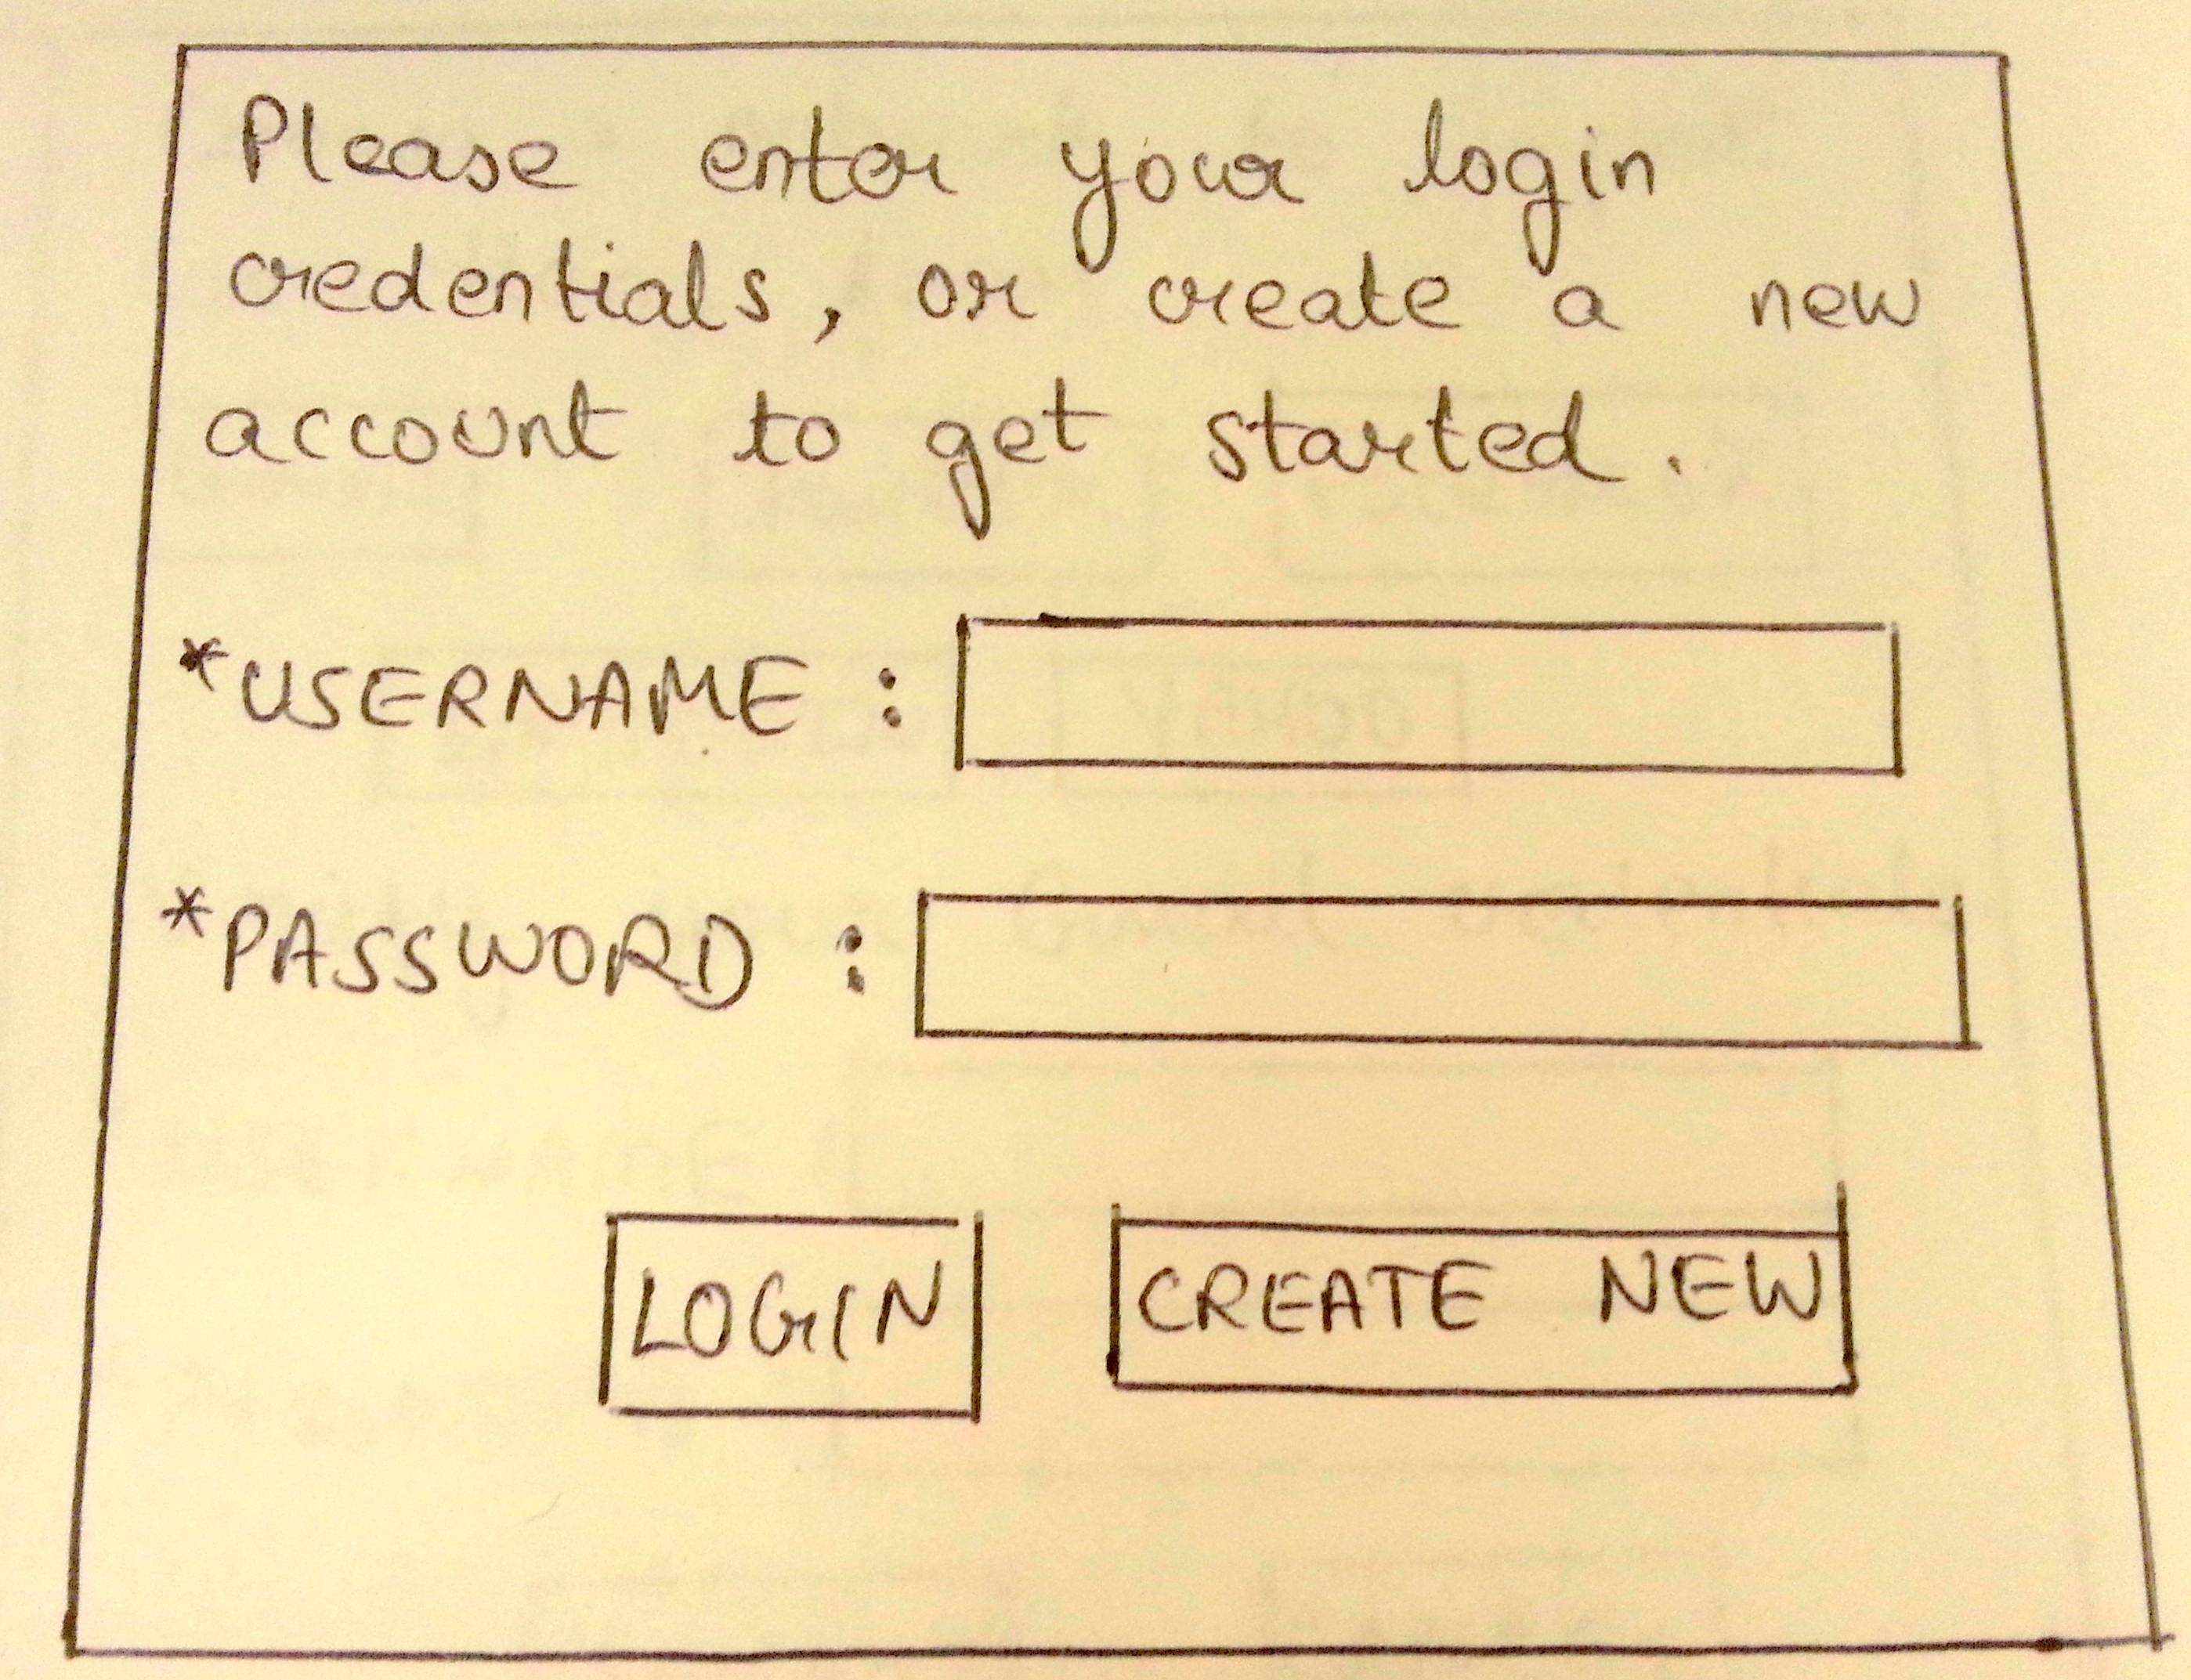 Please enter your login
credentials, or create a new
account to get started.
*USERNAME :
*PASSWORD :
LOGIN CREATE NEW